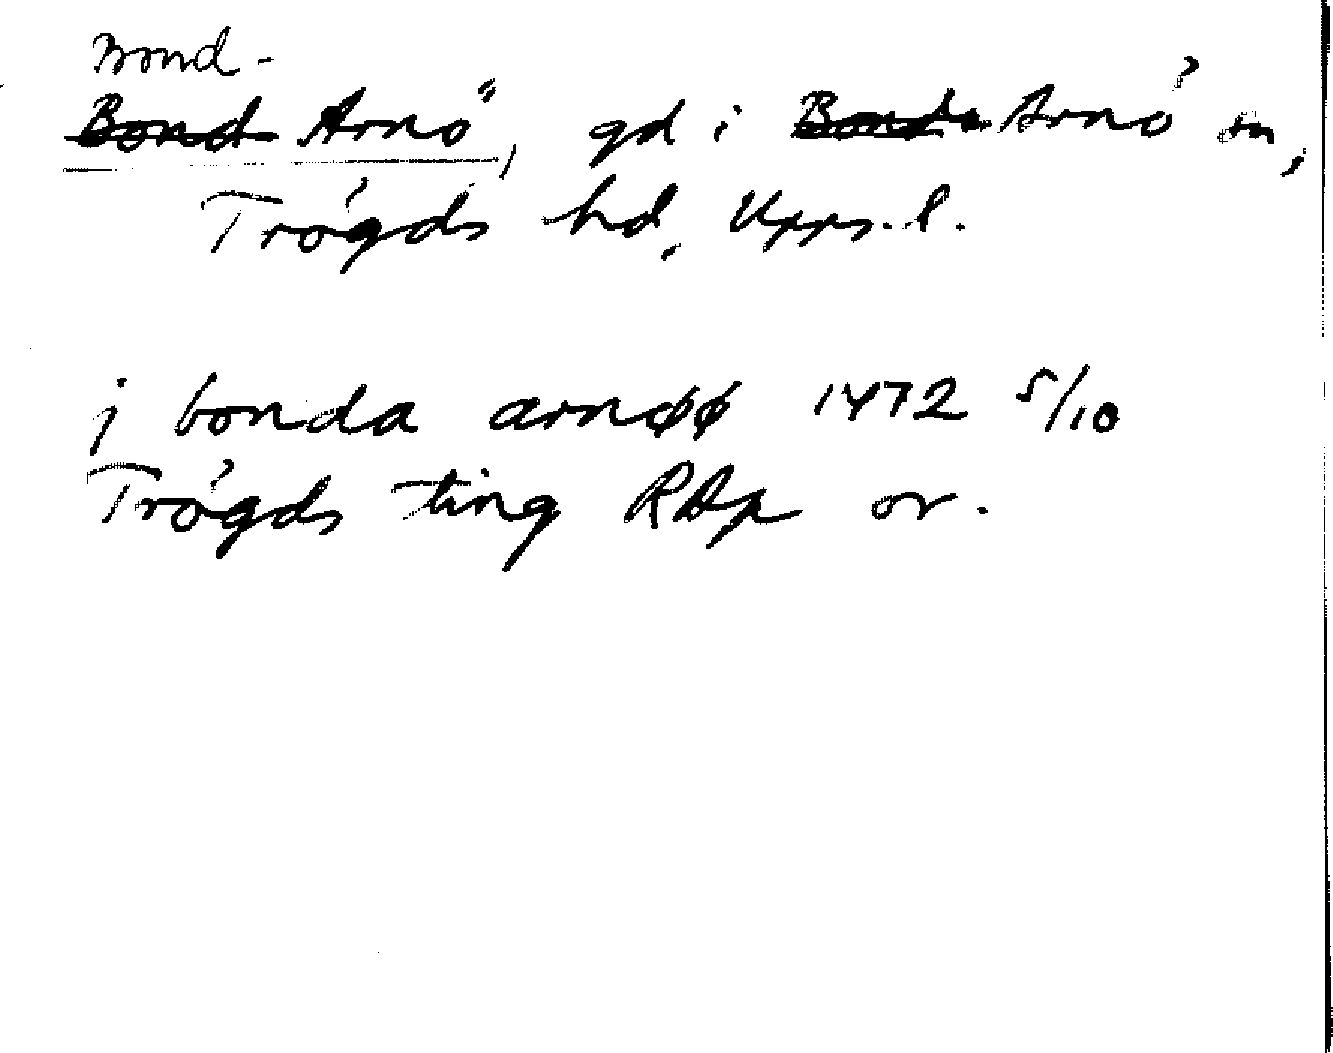 Bond-
Bond Arnö, gd i Bonda Arnö sn,
Trögds hd, Upps. l.
j bonda arnøø 1472 5/10
Trögds ting RAp or.